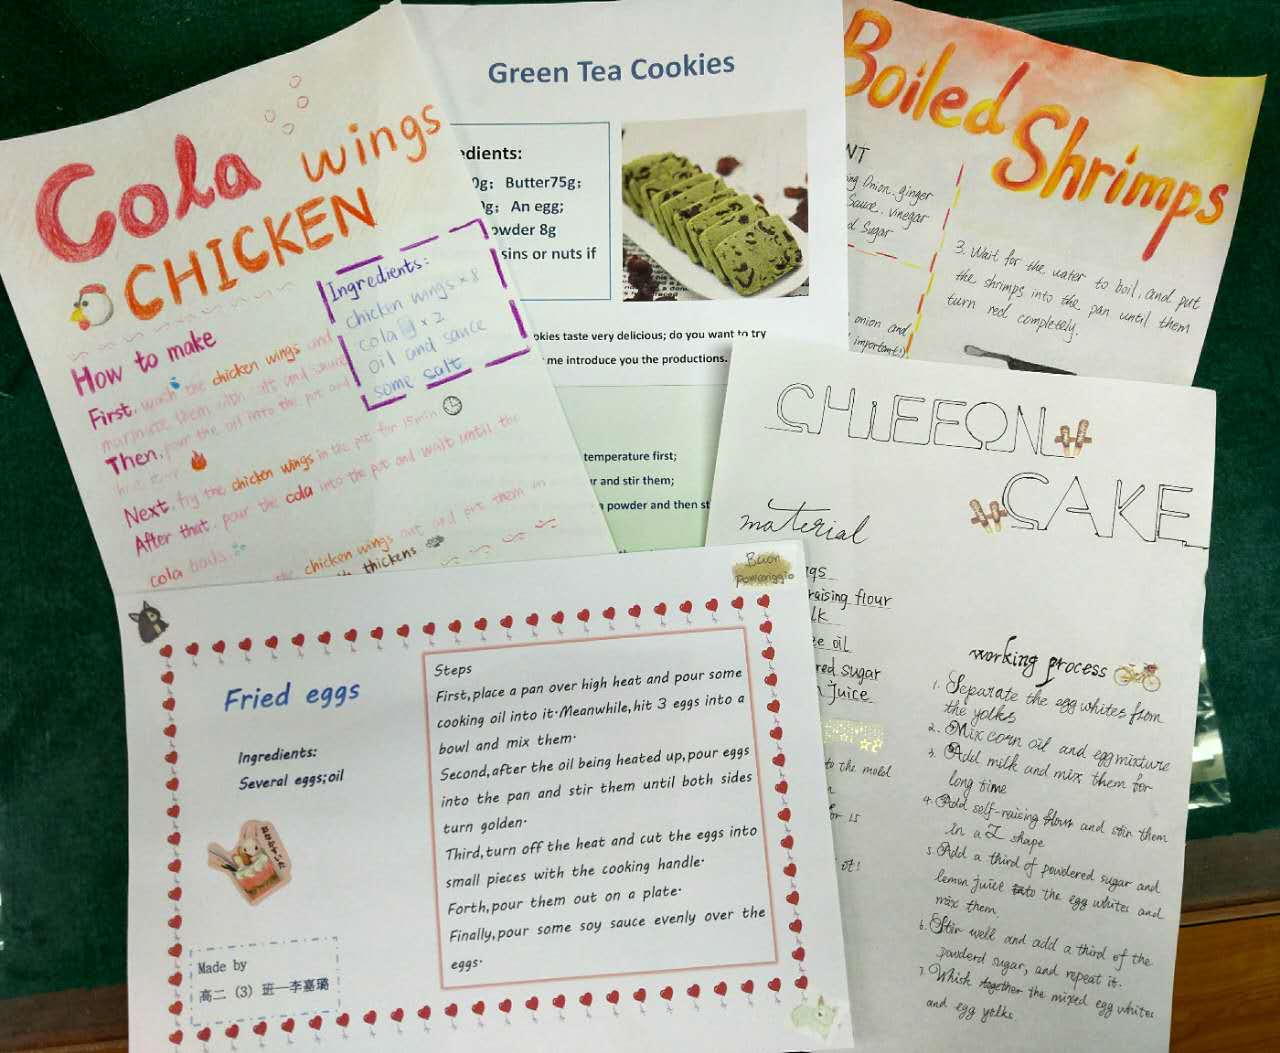 Cola wings
CHICKEN
Ingredients:
chicken wings × 8
cola × 2
oil and sauce
some salt
How to make
First, wash the chicken wings and
marinate them with salt and sauce
Then, pour the oil into the pot and
Next, fry the chicken wings in the pot for 15min
After that, pour the cola into the pot and wait until the
cola boils.
the chicken wings out and put them in
thickens
Green Tea Cookies
edients:
0g; Butter75g;
0g; An egg;
owder 8g
sins or nuts if
okies taste very delicious; do you want to try
me introduce you the productions.
temperature first;
ur and stir them;
powder and then st
Boiled
Shrimps
NT
ing Onion, ginger
Sauce, vinegar
d Sugar
onion and
important!)
3. Wait for the water to boil, and put
the shrimps into the pan until them
turn red completely.
CHIFFON
CAKE
material
ggs
raising flour
lk
ze oil
red sugar
n juice
to the mold
for 15
ot!
working process
1. Separate the egg whites from
the yolks
2. Mix corn oil and egg mixture
3. Add milk and mix them for
long time
4. Add self-raising flour and stir them
in a Z shape
5. Add a third of powdered sugar and
lemon juice to the egg whites and
mix them
6. Stir well and add a third of the
powderd sugar, and repeat it.
7. Whisk together the mixed egg whites
and egg yolks.
Buon
Pomeriggio
Fried eggs
Ingredients:
Several eggs;oil
Made by
高二 (3) 班—李嘉璐
Steps
First,place a pan over high heat and pour some
cooking oil into it.Meanwhile,hit 3 eggs into a
bowl and mix them.
Second,after the oil being heated up,pour eggs
into the pan and stir them until both sides
turn golden.
Third,turn off the heat and cut the eggs into
small pieces with the cooking handle.
Forth,pour them out on a plate.
Finally,pour some soy sauce evenly over the
eggs.